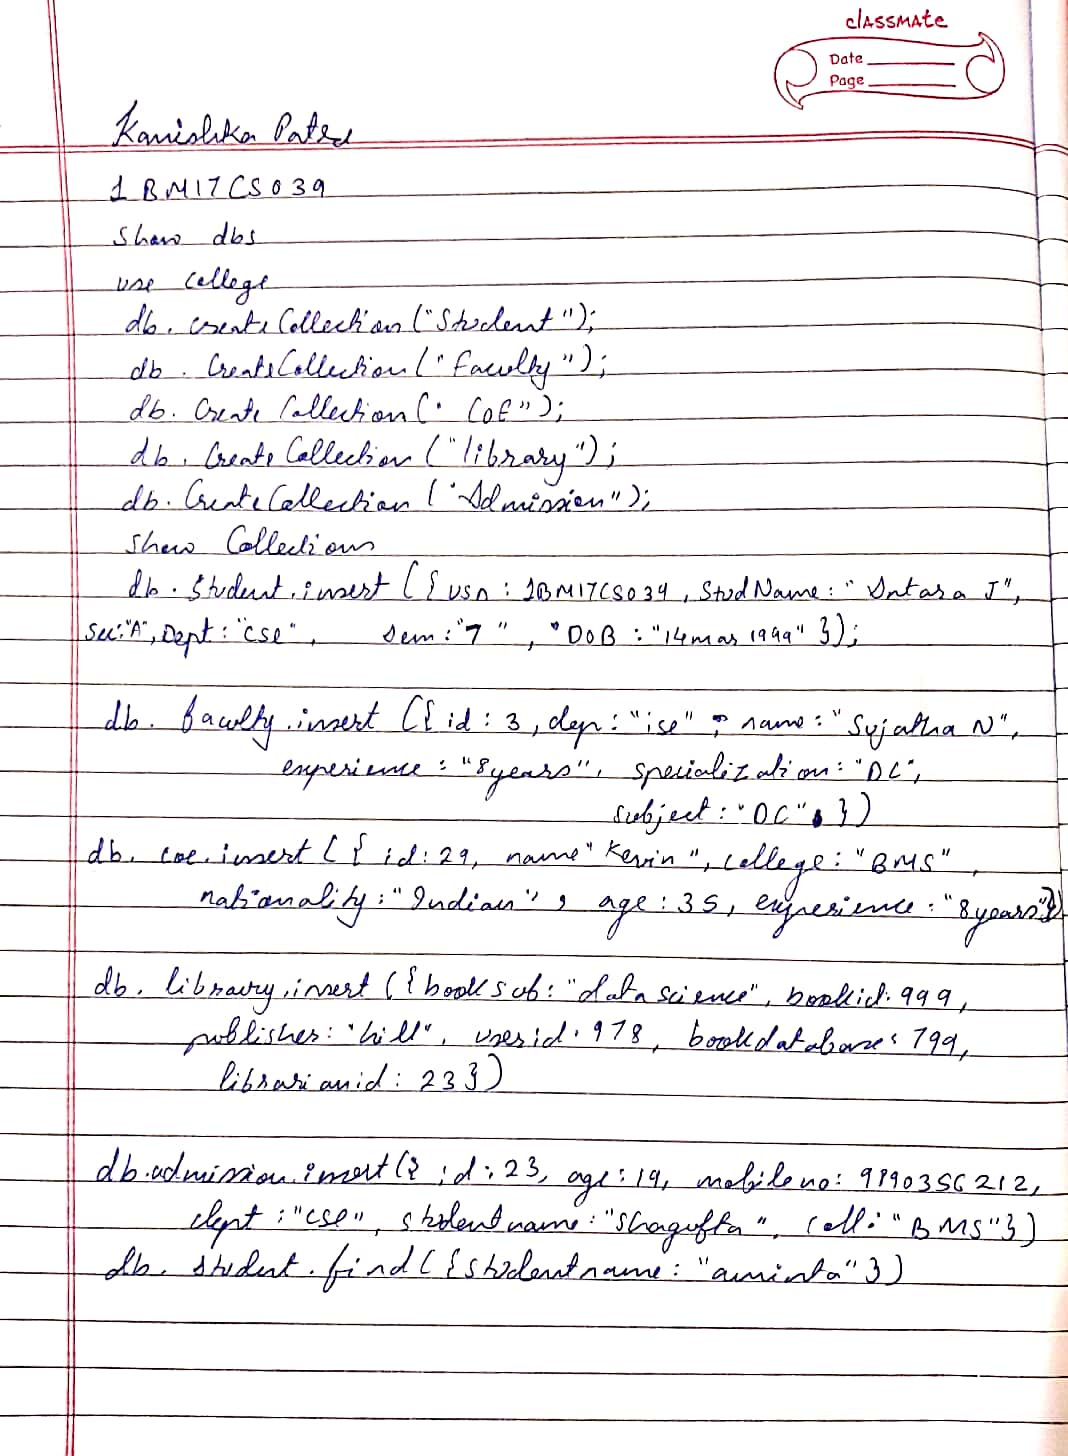 classmate
Date
Page
Kanishka Patel
1BM17CS039
Show dbs
use college
db. createCollection ("Student");
db. CreateCollection ("Faculty");
db. Create Collection (" COE");
db. Create Collection ("library");
db. Create Collection ("Admission");
Show Collections
db. Student.insert ({ USN : 1BM17CS034, StudName : "Antara J",
Sec:"A", Dept : "CSE", Sem : "7 ", "DOB : "14mar 1999" });
db. faculty.insert ({ id : 3, dep: "ise" , name : "Sujatha N",
experience : "8years", specialization : "DC",
subject : "DC" })
db. coe.insert ({ id: 29, name" Kevin ", college : "BMS",
nationality : "Indian", age : 35, experience : "8years"})
db. library.insert ({ book sub: "data science", bookid: 999,
publisher: "hill", userid: 978, bookdatabase: 799,
librarianid : 23 })
db.admission.insert ({ id : 23, age : 19, mobile no: 9890356212,
dept : "CSE", studentname : "Shagufta", coll : "BMS"})
db. student. find ({studentname : "aminta" })